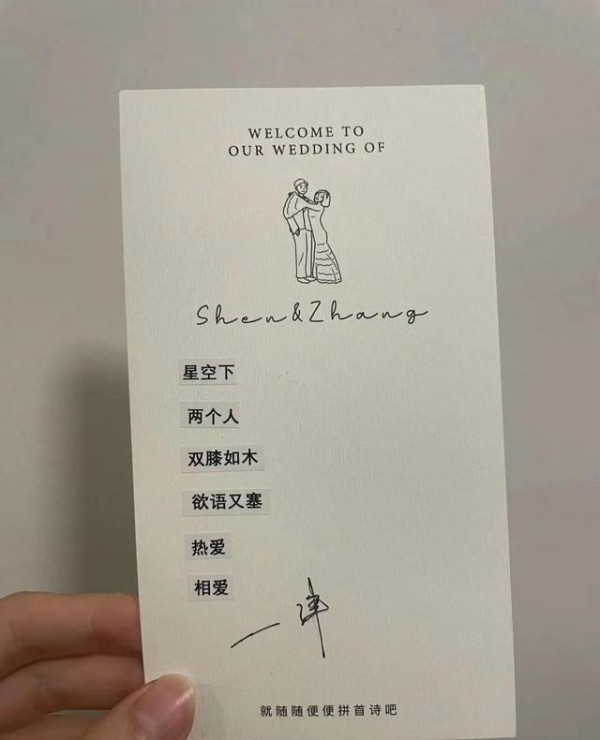 WELCOME TO
OUR WEDDING OF
Shen&Zhang
星空下
两个人
双膝如木
欲语又塞
热爱
相爱
就随随便便拼首诗吧